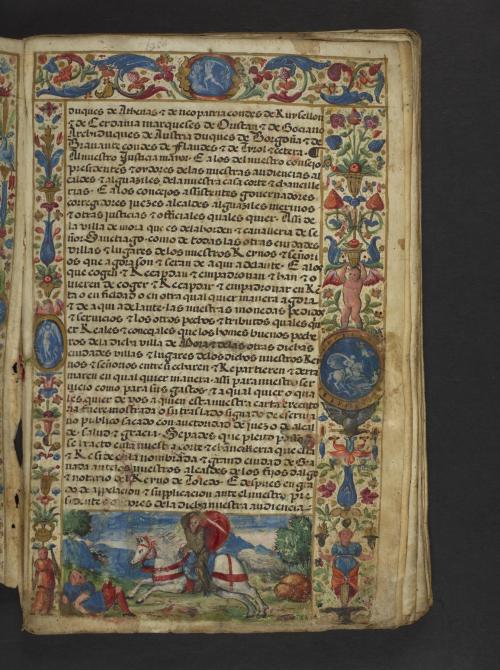 duques de Athenas ⁊ de neopatria condes de Ruysellon
⁊ de Cerdania marqueses de Oristan ⁊ de Gociano
Archiduques de Austria Duques de Borgoña ⁊ de
Bravante condes de Flandes ⁊ de Tirol ⁊ cetera
Al nuestro Justicia maior. E a los del nuestro consejo
presidentes ⁊ oydores delas nuestras audiencias al
caldes ⁊ alguaziles dela nuestra casa corte ⁊ chancille
rias. E a los concejos assistentes governadores
corregidores juezes alcaldes alguaziles merinos
⁊ otras justicias ⁊ officiales quales quier. Assi de
la villa de mora que es dela horden ⁊ cavalleria de se
ñor Santiago. como de todas las otras ciudades
villas ⁊ lugares de los nuestros Reynos ⁊ señori
os que agora son ⁊ seran de aqui adelante. E a los
que cogen ⁊ Recaudan ⁊ empadronan ⁊ han ⁊ o
vieren de coger ⁊ Recaudar ⁊ empadronar en Ren
ta o en fieldad o en otra qual quier manera agora
⁊ de aqui adelante. las nuestras monedas pedidos
⁊ servicios ⁊ los otros pechos ⁊ tributos quales qui
er Reales ⁊ concejales que los homes buenos peche
ros dela dicha villa de Mora ⁊ delas otras dichas
ciudades villas ⁊ lugares delos dichos nuestros Rey
nos ⁊ señorios entre si echaren ⁊ Repartieren ⁊ derra
maren en qual quier manera. assi para nuestro ser
vicio como para sus gastos ⁊ a qual quier o qua
les quier de vos a quien esta nuestra carta executo
ria fuere mostrada o su traslado signado de escriva
no publico sacado con autoridad de juez o de alcal
de. salud ⁊ gracia. Sepades que pleito passo ⁊
se tracto en la nuestra corte ⁊ chancilleria que esta
⁊ Reside en la nombrada ⁊ grand ciudad de Gra
nada ante los nuestros alcaldes de los fijos dalgo
⁊ notario del Reyno de Toledo. E despues en gra
do de appelacion ⁊ supplicacion ante el nuestro pre
sidente ⁊ oydores dela dicha nuestra audiencia